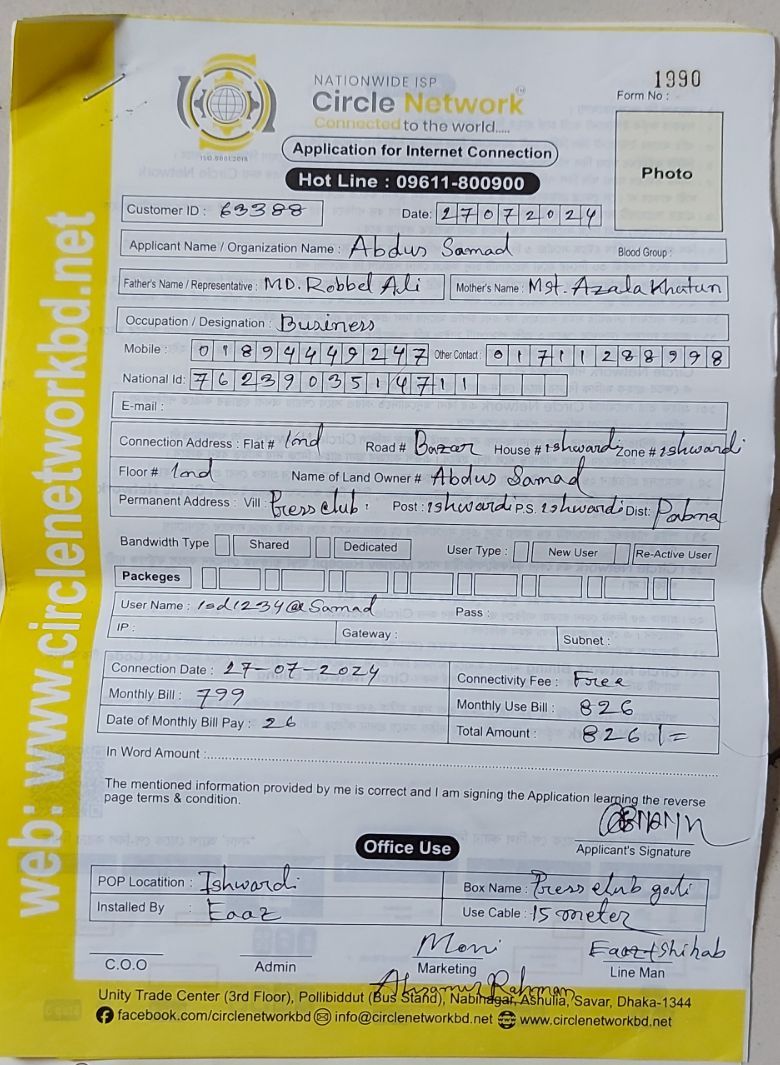 1990
NATIONWIDE ISP
Form No :
Circle Network
Connected to the world.....
ISO:9001:2015
Application for Internet Connection
Photo
Hot Line : 09611-800900
Customer ID : 63388 Date: 27072024
Applicant Name / Organization Name : Abdus Samad Blood Group :
Father's Name / Representative : MD. Robbel Ali Mother's Name : Mst. Azala Khatun
Occupation / Designation : Business
Mobile : 01894449247 Other Contact : 01711288998
National Id: 7623903514711
E-mail :
Connection Address : Flat # Road # Bazar House # ishwardi Zone # ishwardi
Floor # Name of Land Owner # Abdus Samad
Permanent Address : Vill : Press club. Post : ishwardi P.S. ishwardi Dist: Pabna
Bandwidth Type Shared Dedicated User Type : New User Re-Active User
Packeges
User Name : Pass :
IP : Gateway : Subnet :
Connection Date : 27-07-2024 Connectivity Fee : Free
Monthly Bill : 799 Monthly Use Bill : 826
Date of Monthly Bill Pay : 26 Total Amount : 826/=
In Word Amount :
The mentioned information provided by me is correct and I am signing the Application learning the reverse
page terms & condition.
Applicant's Signature
Office Use
POP Locatition : Ishwardi Box Name : Press club goli
Installed By : Eaaz Use Cable : 15 meter
Moni Eaaz+Shihab
C.O.O Admin Marketing Line Man
Rahman
Unity Trade Center (3rd Floor), Pollibiddut (Bus Stand), Nabinagar, Ashulia, Savar, Dhaka-1344
facebook.com/circlenetworkbd info@circlenetworkbd.net www.circlenetworkbd.net
web: www.circlenetworkbd.net